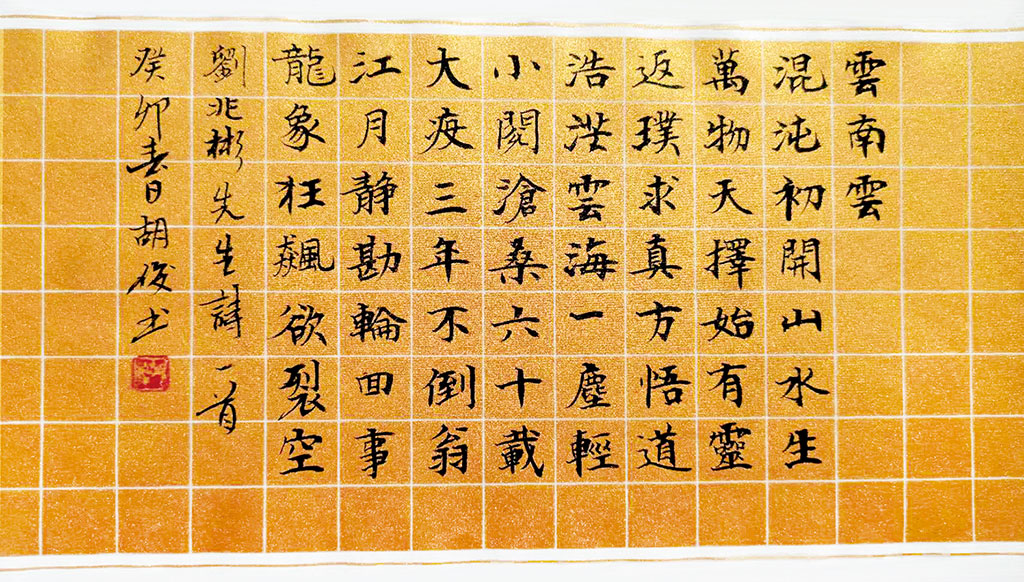 雲南雲
混沌初開山水生
萬物天擇始有靈
返璞求真方悟道
浩茫雲海一塵輕
小閱滄桑六十載
大疫三年不倒翁
江月靜勘輪回事
龍象狂飆欲裂空
劉兆彬先生詩一首
癸卯春日胡俊书